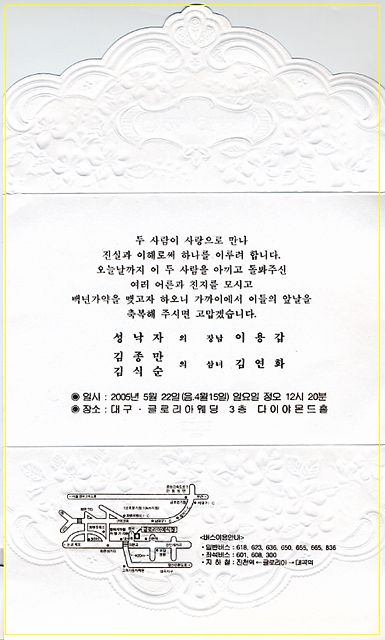 두 사람이 사랑으로 만나
진실과 이해로써 하나를 이루려 합니다.
오늘날까지 이 두 사람을 아끼고 돌봐주신
여러 어른과 친지를 모시고
백년가약을 맺고자 하오니 가까이에서 이들의 앞날을
축복해 주시면 고맙겠습니다.
성낙자 의 장남 이용갑
김종만
김식순 의 삼녀 김연화
◉ 일시 : 2005년 5월 22일(음.4월15일) 일요일 정오 12시 20분
◉ 장소 : 대구 · 글로리아웨딩 3층 다이아몬드홀
<버스이용안내>
· 일반버스 : 618, 623, 636, 650, 655, 665, 836
· 좌석버스 : 601, 608, 300
· 지하철 : 진천역 ← 글로리아 → 대곡역